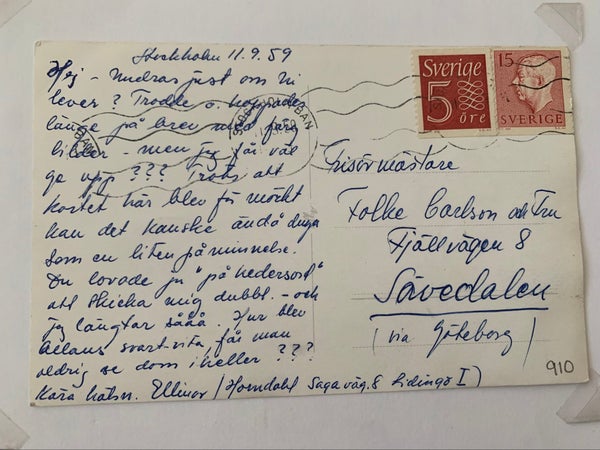 Stockholm 11.9.59
Hej – undras just om Ni
lever? Trodde o. hoppades
länge på brev med färg
bilder – men jag får väl
ge upp ??? Trots att
kortet här blev för mörkt
kan det kanske ändå duga
som en liten påminnelse.
Du lovade ju "på hedersord"
att skicka mig dubbl. – och
jag längtar sååå. Hur blev
Allans svart-vita, får man
aldrig se dom i heller ???
Kära hälsn. Ellinor / Horndahl Sagaväg. 8 Lidingö I )
Sverige
5
öre
15
SVERIGE
BAN
Frisörmästare
Folke Carlson och Fru
Fjällvägen 8
Sävedalen
( via Göteborg )
910